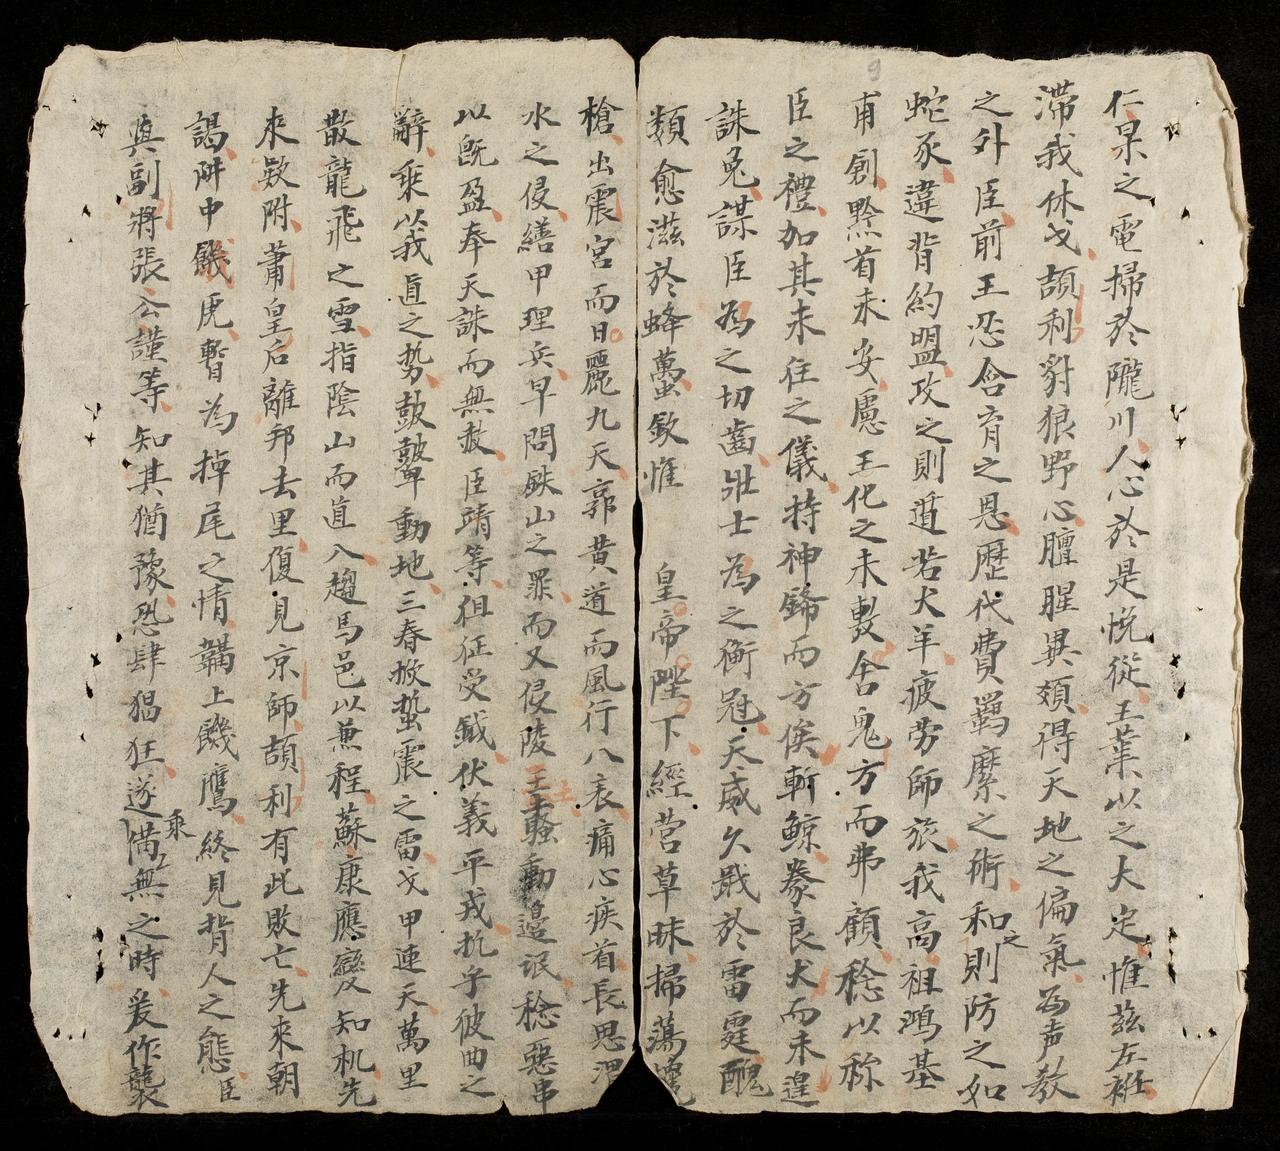 仁杲之電掃於隴川人心於是悦從王業以之大定惟茲左衽
滯我休戈頡利豺狼野心膻腥異類得天地之偏氣為声教
之外臣前王忍含育之恩歷代費羈縻之術和之則防之如
蛇豕違背約盟攻之則遁若犬羊疲劳師旅我高祖鴻基
甫創黔首未安慮王化之未敷舍鬼方而弗顧稔以称
臣之禮加其未往之儀持神鋒而方俟斬鯨豢良犬而未遑
誅兔謀臣為之切齒壯士為之衝冠天威久戢於雷霆醜
類愈滋於蜂蠆欽惟 皇帝陛下經营草昧掃蕩
槍出震宮而日麗九天郭黄道而風行八表痛心疾首長思渭
水之侵繕甲理兵早問鉄山之罪而又侵陵王土騷動邉氓稔惡串
以旣盈奉天誅而無赦臣靖等徂征受鉞伏義平戎抗乎彼曲之
辭乘以我直之势鼓鼙動地三春掀蟄震之雷戈甲連天萬里
散龍飛之雪指陰山而直入趨馬邑以兼程蘇康應變知机先
來欵附蕭皇后離邦去里復見京師頡利有此敗亡先來朝
謁阱中饑虎暫为掉尾之情韝上饑鷹終見背人之態臣
與副將張公謹等知其猶豫恐肆猖狂遂乘俻無之時爰作襲